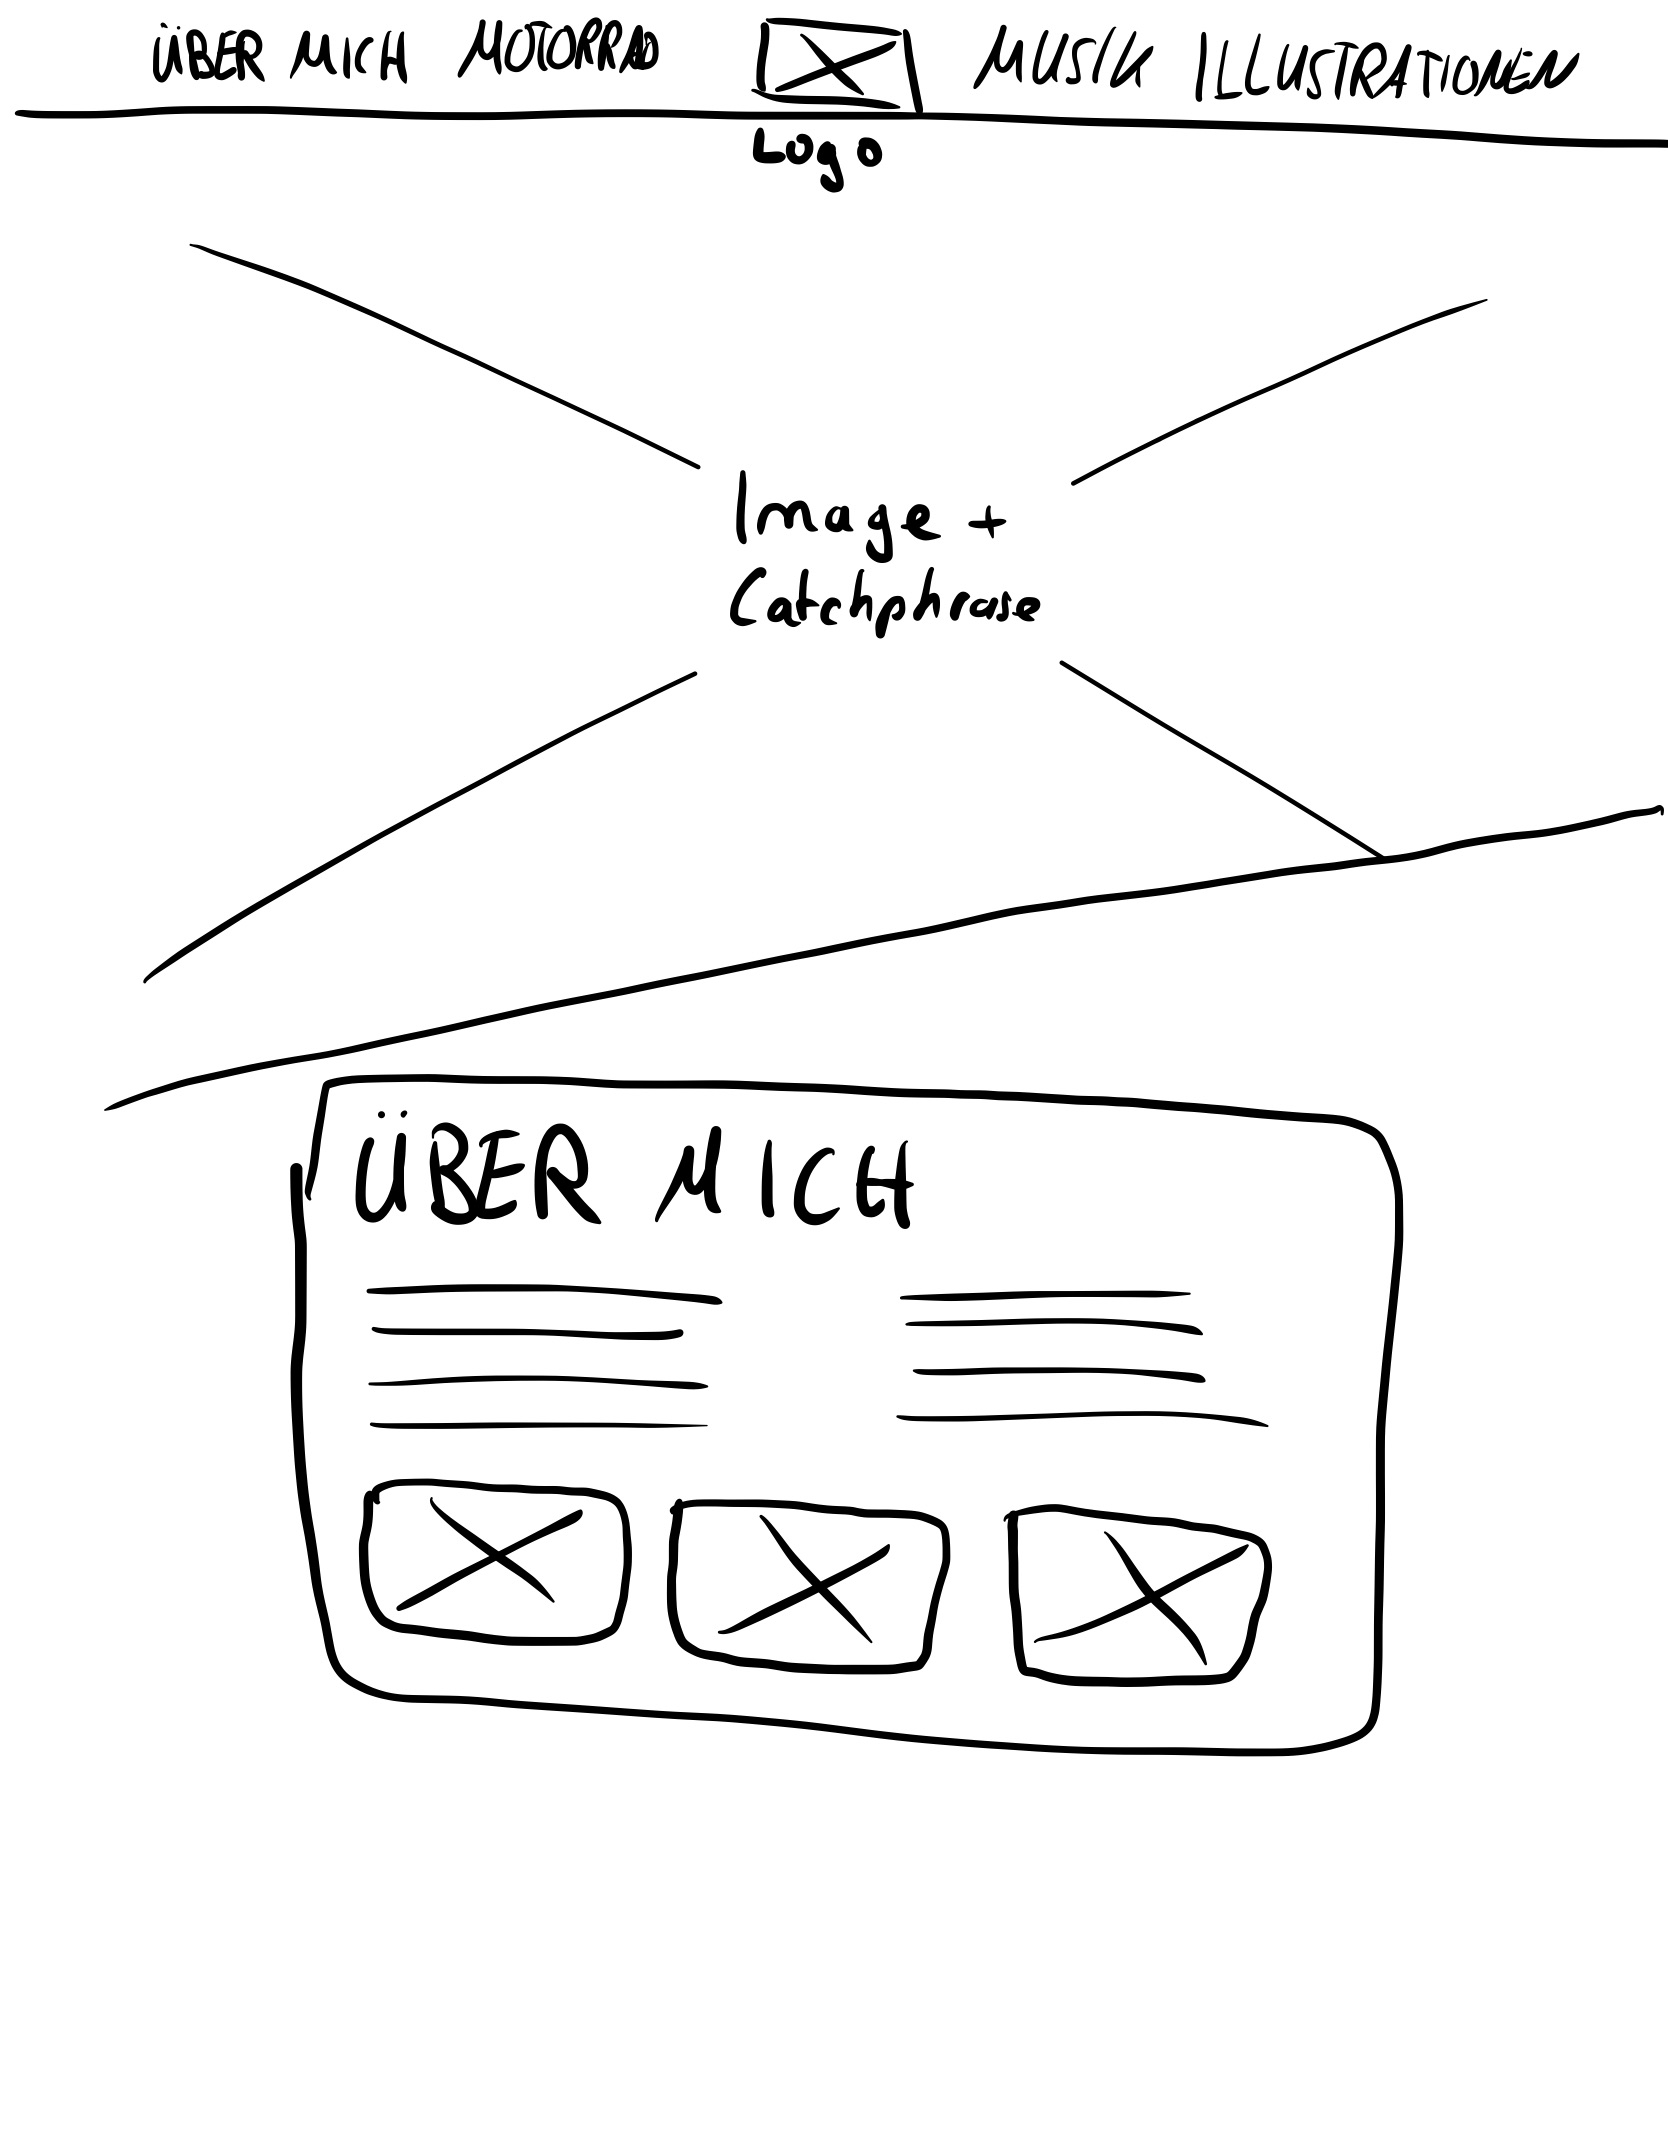 ÜBER MICH MOTORRAD MUSIK ILLUSTRATIONEN
Logo
Image +
Catchphrase
ÜBER MICH